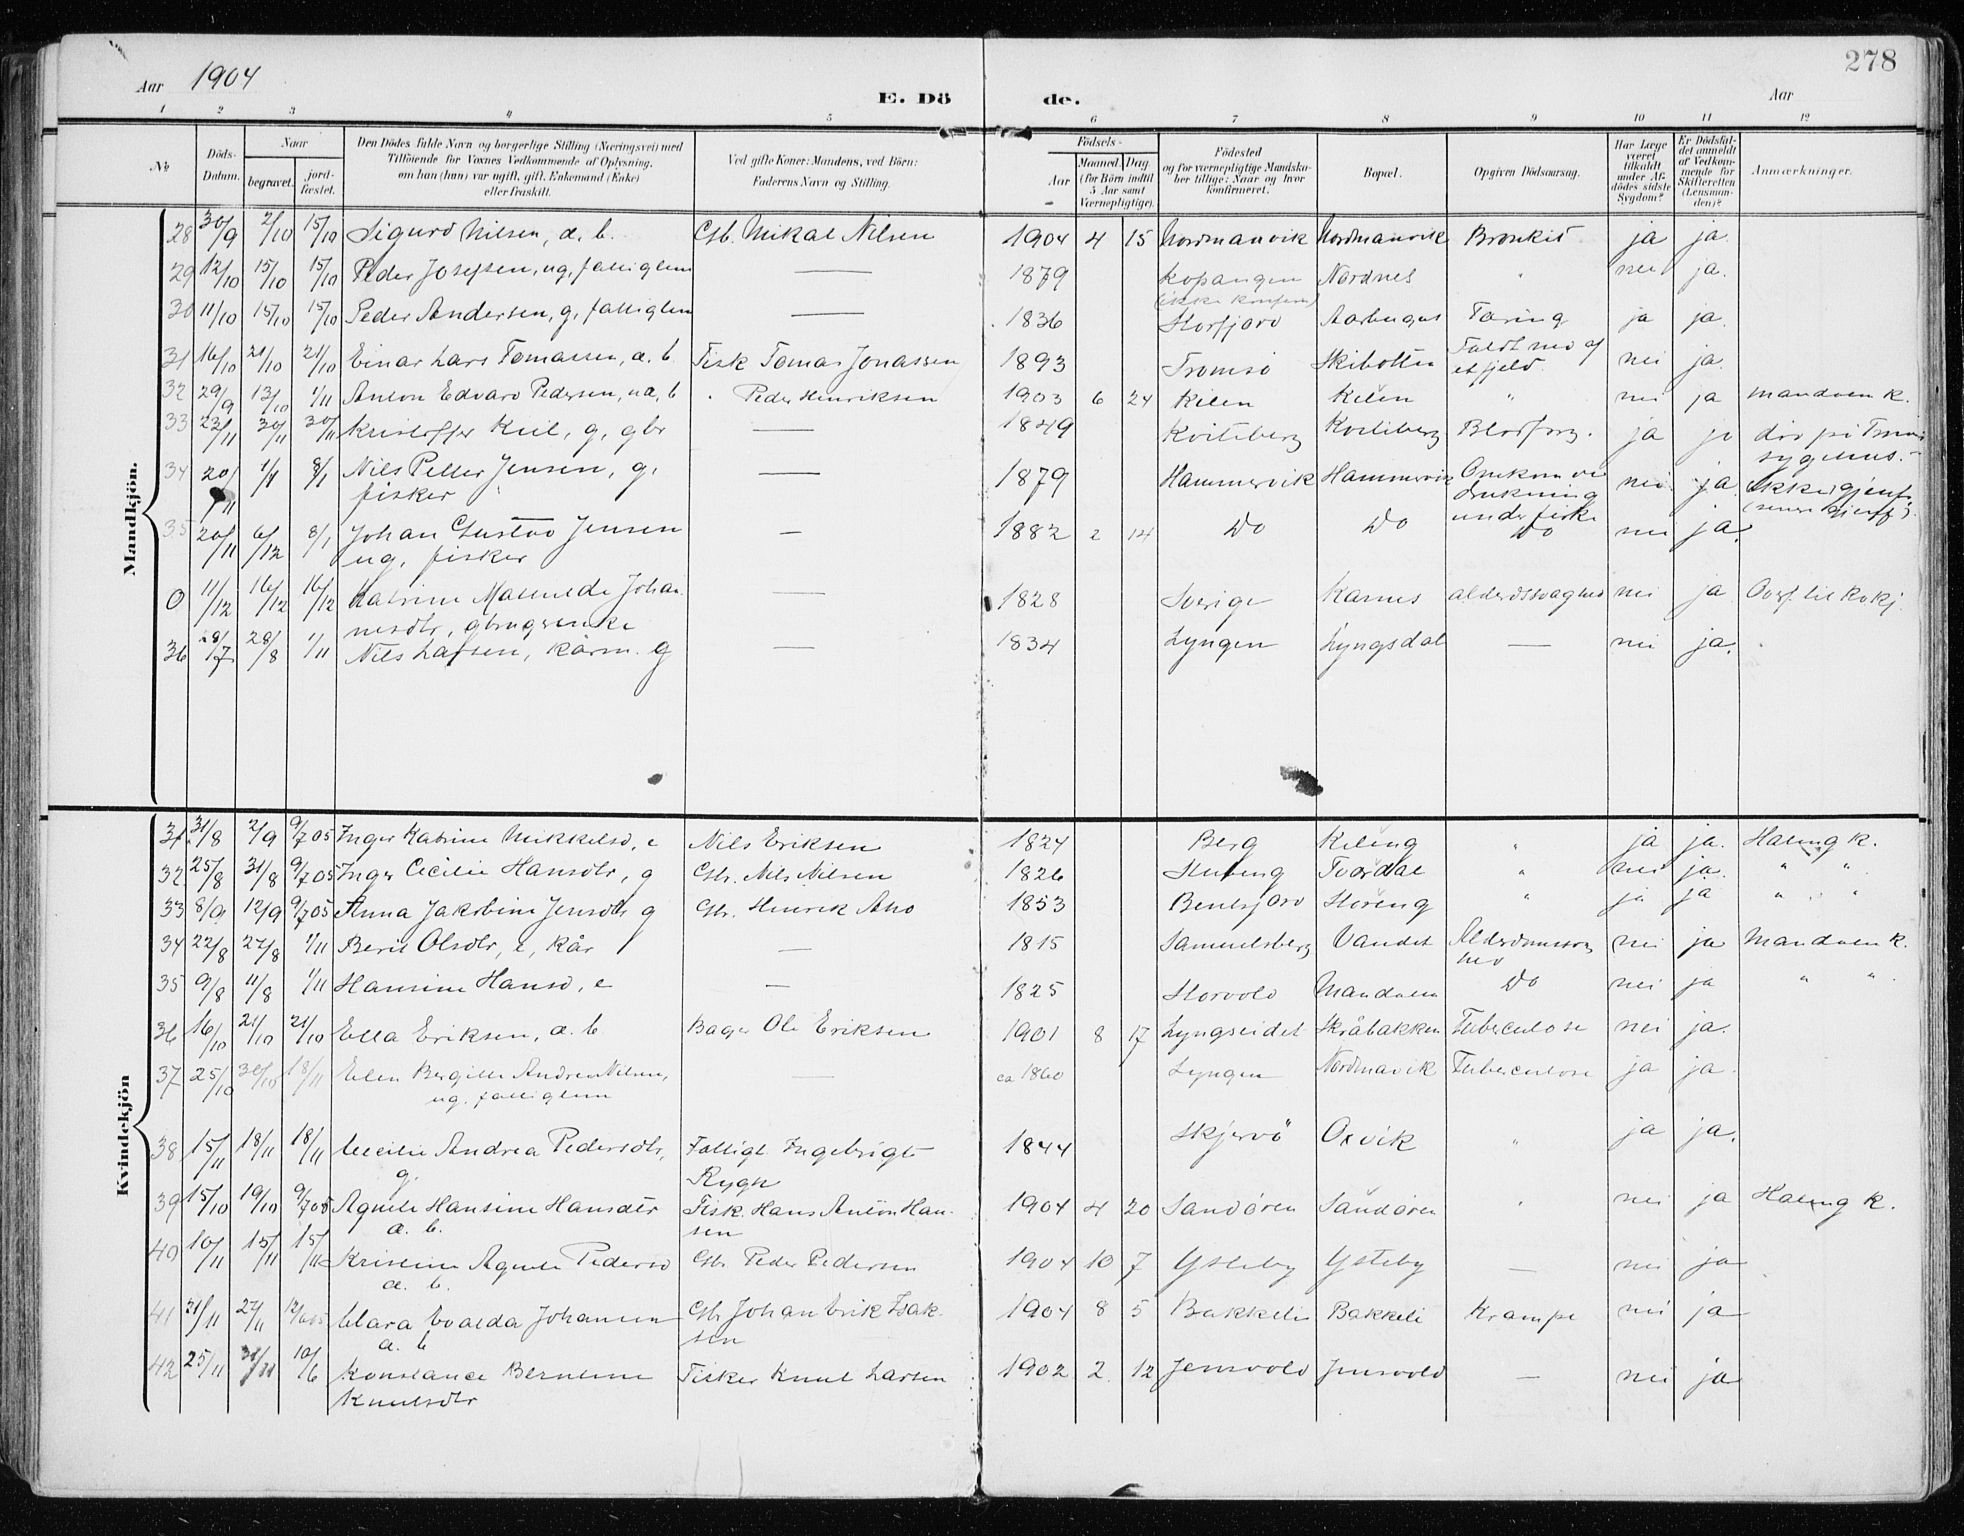 278
Aar 1904
E. Döde.
Aar
1 2 3 4 5 6 7 8 9 10 11 12
№
Döds-Datum.
Naar
begravet.
jord-fæstet.
Den Dödes fulde Navn og borgerlige Stilling (Næringsvei) med
Tilföiende for Voxnes Vedkommende af Oplysning,
om han (hun) var ugift, gift, Enkemand (Enke)
eller fraskilt.
Ved gifte Koner: Mandens, ved Börn:
Faderens Navn og Stilling.
Födsels-
Aar
Maaned. Dag.
(for Börn indtil
5 Aar samt
Værnepligtige).
Födested
og for værnepligtige Mandska-
ber tillige: Naar og hvor
konfirmeret.
Bopæl.
Opgiven Dödsaarsag.
Har Læge
været
tilkaldt
under Af-
dödes sidste
Sygdom?
Er Dödsfal-
det anmeldt
af Vedkom-
mende for
Skifteretten
(Lensman-
den)?
Anmærkninger.
Mandkjön.
28 30/9 2/10 15/10 Sigurd Nilsen, æ. b. Gb. Mikal Nilsen 1904 4 15 Nordmanvik Nordmanvik Bronkit ja ja
29 12/10 15/10 15/10 Peder Josefsen, ug, fattiglem — 1879 Kopangen Nordnes " nei ja.
(ikke konfirm)
30 11/10 15/10 15/10 Peder Andersen, g, fattiglem — 1836 Storfjord Tæring ja ja.
31 16/10 21/10 21/10 Einar Lars Tomassen, æ. b. Fisk Tomas Jonassen 1893 Tromsö Skibotten Faldt ned af nei ja.
et fjeld.
32 29/9 13/10 1/11 Anton Edvard Pedersen, uæ, b " Peder Henriksen 1903 6 24 Kilen Kilen " nei ja Mandalen k.
33 23/11 30/11 30/11 Kristoffer Kiil, g, gbr — 1849 Kviteberg Kviteberg ja ja död på Tromsö
sygehus.
34 20/11 1/1 8/1 Nils Petter Jensen, g, — 1879 Hammervik Hammervik Omkom ved nei ja (ikke gjenf.
fisker drukning
under fiske
35 20/11 6/12 8/1 Johan Gustav Jensen 1882 2 14 Do Do Do nei ja.
ug, fisker
0 11/12 16/12 16/12 Katrine Johan- — 1828 Sverige Karnes alderdsvaghed nei ja Ovrf. til Kvkj.
nesdtr, gbrugerenke
36 28/7 28/8 1/11 Nils Larsen, kårm. g — 1834 Lyngen Lyngsdal — nei ja.
Kvindekjön
31 31/8 2/9 9/7 05 Inger Katrine Mikkelsd, e Nils Eriksen 1824 Berg " ja ja. k.
32 25/8 31/8 9/7 05 Inger Cecilie Hansdtr, g Gb. Nils Nilsen 1826 " nei ja. " "
33 8/9 12/9 9/7 05 Anna Jakobine Jensdtr g Gb. Henrik 1853 Storeng " ja ja " "
34 22/8 27/8 1/11 Berit Olsdtr, e, kår — 1815 Samuelsberg nei ja Mandalen k.
35 9/8 11/8 1/11 Hansine Hansd, e — 1825 Storvold Mandalen Do nei ja " "
36 16/10 21/10 21/10 Ella Eriksen, æ. b. Bager Ole Eriksen 1901 8 17 Lyngseidet Skråbakken Tuberculose nei ja.
37 25/10 30/10 18/11 Elen Bergitte Andrea Nilsen, — ca 1860 Lyngen Nordmavik Tuberculose ja ja
ug. fattiglem
38 15/11 18/11 18/11 Cecilie Andrea Pedersdtr, Fattigl. Ingebrigt 1844 Skjervö Oxvik " ja ja.
g.
39 15/10 19/10 9/7 05 Agnete Hansine Hansdtr Fisk. Hans Anton Han- 1904 4 20 Sandören Sandören " nei ja k.
æ. b. sen
40 10/11 15/11 15/11 Kristine Agnete Pedersd Gb. Peder Pedersen 1904 10 7 Ysteby Ysteby — nei ja
æ. b.
41 27/11 Clara Evalda Johansen Gb. Johan Erik Isak- 1904 8 5 Bakkeli Bakkeli Krampe nei ja
æ. b sen
42 25/11 10/6 Konstance Berntine Fisker Knut Larsen 1902 2 12 Jensvold Jensvold — nei ja
Knutsdtr